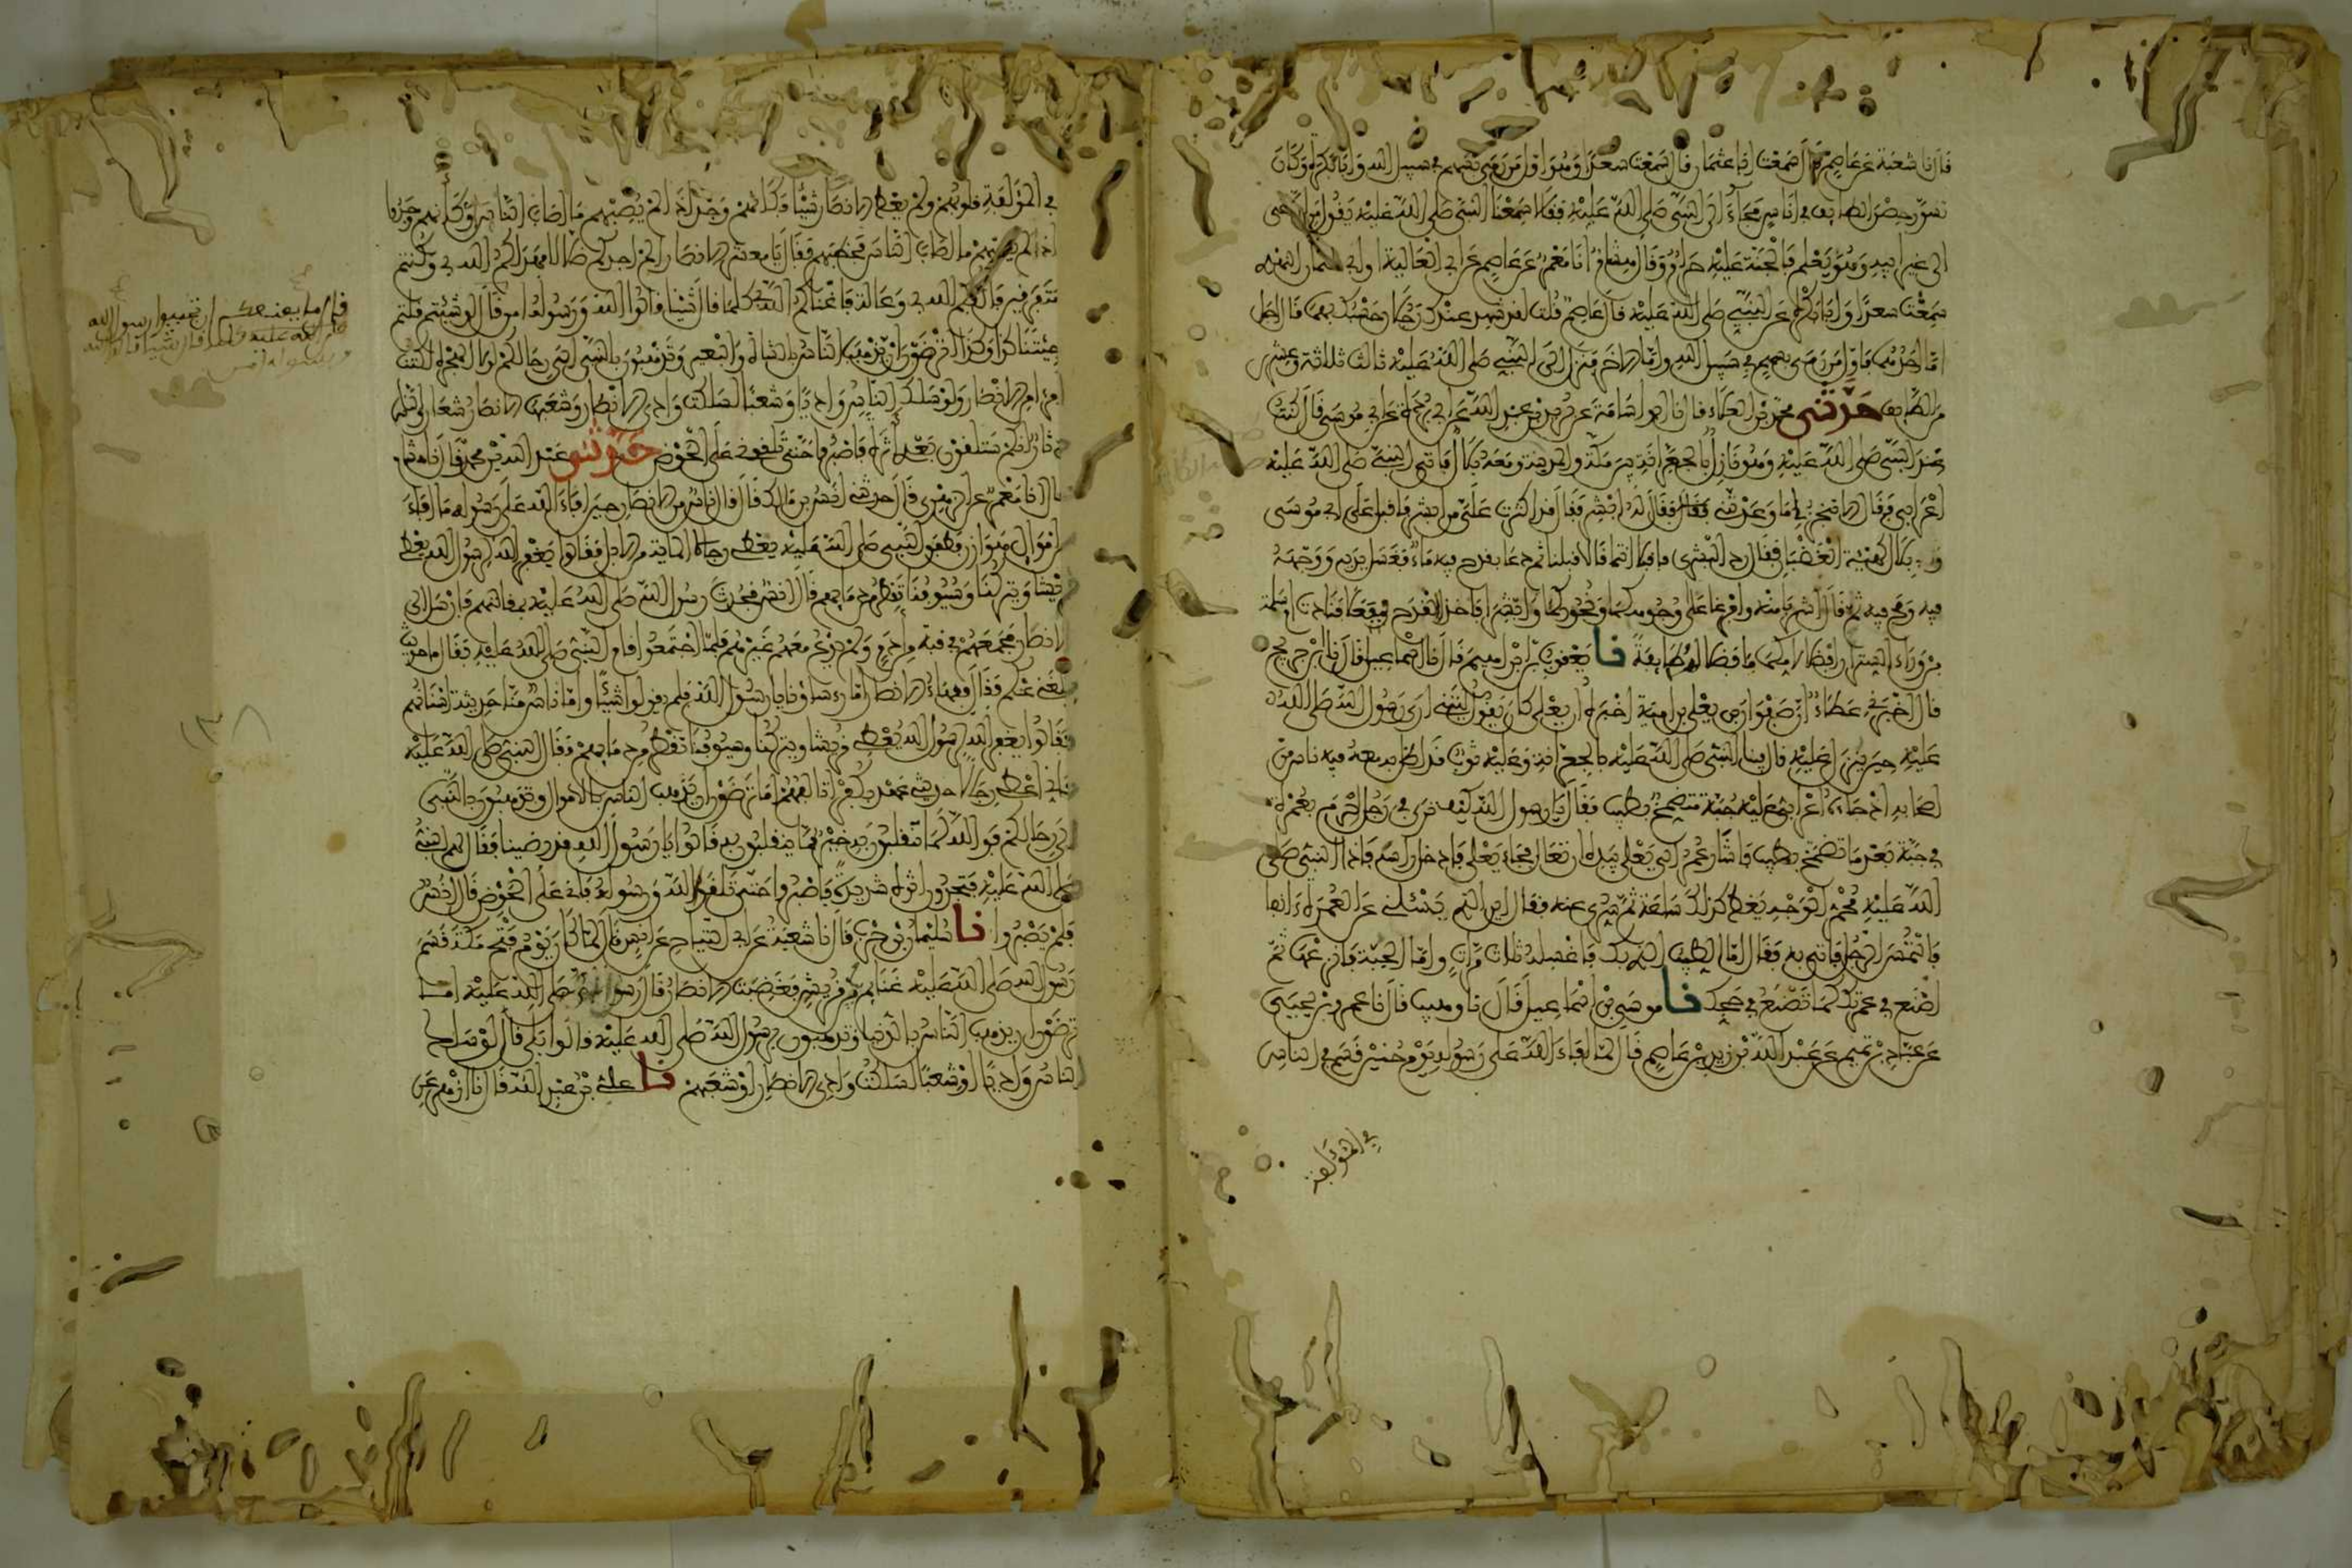 قال نا شعبة عن عاصم قال سمعت ابا عثمان قال سمعت سعدا وهو اول من رمى بسهم في سبيل الله وابا بكرة وكان
تسور حصن الطايف في اناس فجاء الى النبي صلى الله عليه فقالا سمعنا النبي صلى الله عليه يقول من ادعى
الى غير ابيه وهو يعلم فالجنة عليه حرام وقال هشام انا معمر عن عاصم عن ابي العالية او ابي عثمان النهدي
سمعت سعدا وابا بكرة عن النبي صلى الله عليه قال عاصم قلت لقد شهد عندك رجلان حسبك بهما قال اجل
اما احدهما فاول من رمى بسهم في سبيل الله واما الاخر فنزل الى النبي صلى الله عليه ثالث ثلاثة وعشرين
من الطايف حدثني محمد بن العلاء قال نا ابو اسامة عن بريد بن عبد الله عن ابي بردة عن ابي موسى قال كنت
عند النبي صلى الله عليه وهو نازل بالجعرانة بين مكة والمدينة ومعه بلال فاتى النبي صلى الله عليه
اعرابي فقال الا تنجز لي ما وعدتني فقال له ابشر فقال قد اكثرت علي من ابشر فاقبل على ابي موسى
وبلال كهيئة الغضبان فقال رد البشرى فاقبلا انتما قالا قبلنا ثم دعا بقدح فيه ماء فغسل يديه ووجهه
فيه ومج فيه ثم قال اشربا منه وافرغا على وجوهكما ونحوركما وابشرا فاخذا القدح ففعلا فنادت ام سلمة
من وراء الستر ان افضلا لامكما فافضلا لها منه طايفة نا يعقوب بن ابراهيم قال نا اسماعيل قال نا ابن جريج
قال اخبرني عطاء ان صفوان بن يعلى بن امية اخبره ان يعلى كان يقول ليتني ارى رسول الله صلى الله
عليه حين ينزل عليه قال فبينا النبي صلى الله عليه بالجعرانة وعليه ثوب قد اظل به معه فيه ناس من
اصحابه اذ جاءه اعرابي عليه جبة متضمخ بطيب فقال يا رسول الله كيف ترى في رجل احرم بعمرة
في جبة بعد ما تضمخ بطيب فاشار عمر الى يعلى بيده ان تعال فجاء يعلى فادخل راسه فاذا النبي صلى
الله عليه محمر الوجه يغط كذلك ساعة ثم سري عنه فقال اين الذي يسئلني عن العمرة ءانفا
فالتمس الرجل فاتي به فقال اما الطيب الذي بك فاغسله ثلاث مرات واما الجبة فانزعها ثم
اصنع في عمرتك كما تصنع في حجك نا موسى بن اسماعيل قال نا وهيب قال نا عمرو بن يحيى
عن عباد بن تميم عن عبد الله بن زيد بن عاصم قال لما افاء الله على رسوله يوم حنين قسم في الناس
في المؤلفة
في المؤلفة قلوبهم ولم يعط الانصار شيئا فكانهم وجدوا اذ لم يصبهم ما اصاب الناس او كانهم وجدوا
اذ لم يصبهم ما اصاب الناس فخطبهم فقال يا معشر الانصار الم اجدكم ضلالا فهداكم الله بي وكنتم
متفرقين فالفكم الله بي وعالة فاغناكم الله بي كلما قال شيئا قالوا الله ورسوله امن قال لو شئتم قلتم
جئتنا كذا وكذا اترضون ان يذهب الناس بالشاة والبعير وتذهبون بالنبي الى رحالكم لولا الهجرة لكنت
امرءا من الانصار ولو سلك الناس واديا وشعبا لسلكت وادي الانصار وشعبها الانصار شعار والناس
دثار انكم ستلقون بعدي اثرة فاصبروا حتى تلقوني على الحوض حدثني عبد الله بن محمد قال نا هشام
قال انا معمر عن الزهري قال حدثني انس بن مالك قال قال ناس من الانصار حين افاء الله على رسوله ما افاء
من اموال هوازن فطفق النبي صلى الله عليه يعطي رجالا الماية من الابل فقالوا يغفر الله لرسول الله يعطي
قريشا ويتركنا وسيوفنا تقطر من دمايهم قال انس فحدث رسول الله صلى الله عليه بمقالتهم فارسل الى
الانصار فجمعهم في قبة من ادم ولم يدع معهم غيرهم فلما اجتمعوا قام النبي صلى الله عليه فقال ما حديث
بلغني عنكم فقال فقهاء الانصار اما رءساؤنا يا رسول الله فلم يقولوا شيئا واما ناس منا حديثة اسنانهم
فقالوا يغفر الله لرسول الله يعطي قريشا ويتركنا وسيوفنا تقطر من دمايهم فقال النبي صلى الله عليه
فاني اعطي رجالا حديثي عهد بكفر اتالفهم اما ترضون ان يذهب الناس بالاموال وتذهبون بالنبي
الى رحالكم فوالله لما تنقلبون به خير مما ينقلبون به قالوا يا رسول الله قد رضينا فقال لهم النبي
صلى الله عليه فتجدون اثرة شديدة فاصبروا حتى تلقوا الله ورسوله فاني على الحوض قال انس
فلم يصبروا نا سليمان بن حرب قال نا شعبة عن ابي التياح عن انس قال لما كان يوم فتح مكة قسم
رسول الله صلى الله عليه غنايم من قريش فغضبت الانصار قال رسول الله صلى الله عليه اما
ترضون ان يذهب الناس بالدنيا وتذهبون برسول الله صلى الله عليه قالوا بلى قال لو سلك
الناس واديا او شعبا لسلكت وادي الانصار او شعبهم نا علي بن عبد الله قال نا ازهر عن
قال ما يمنعكم ان تجيبوا رسول الله
صلى الله عليه كلما قال شيئا قالوا الله
ورسوله امن